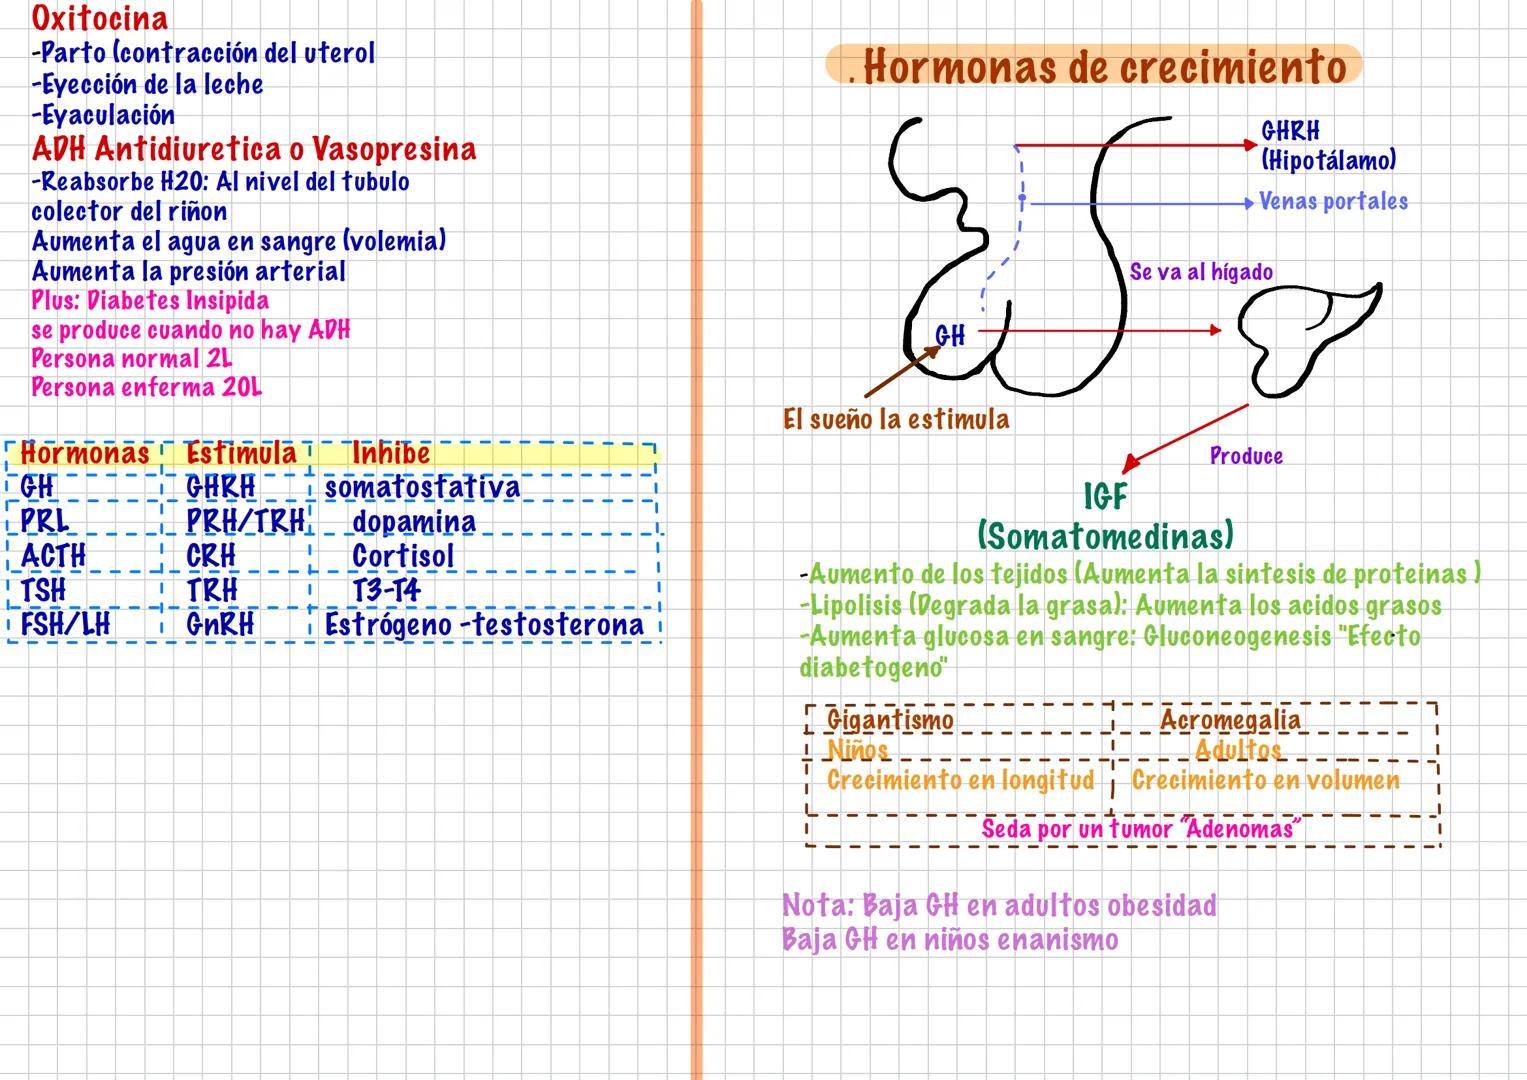 Oxitocina
-Parto (contracción del uterol
-Eyección de la leche
-Eyaculación
ADH Antidiuretica o Vasopresina
-Reabsorbe H20: Al nivel del tubulo
colector del riñon
Aumenta el agua en sangre (volemia)
Aumenta la presión arterial
Plus: Diabetes Insipida
se produce cuando no hay ADH
Persona normal 2L
Persona enferma 20L
Hormonas Estimula Inhibe
GH GHRH somatostativa
PRL PRH/TRH dopamina
ACTH CRH Cortisol
TSH TRH T3-T4
FSH/LH GnRH Estrógeno -testosterona
. Hormonas de crecimiento
GHRH
(Hipotálamo)
Venas portales
Se va al hígado
GH
El sueño la estimula
Produce
IGF
(Somatomedinas)
-Aumento de los tejidos (Aumenta la sintesis de proteinas )
-Lipolisis (Degrada la grasa): Aumenta los acidos grasos
-Aumenta glucosa en sangre: Gluconeogenesis "Efecto
diabetogeno"
Gigantismo Acromegalia
Niños Adultos
Crecimiento en longitud Crecimiento en volumen
Seda por un tumor “Adenomas”
Nota: Baja GH en adultos obesidad
Baja GH en niños enanismo